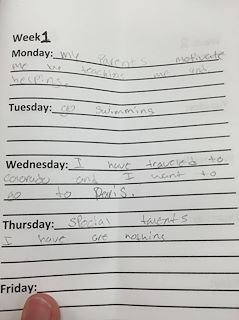 Week 1
Monday: my Parents motivate
me by teaching me and
helping.
Tuesday: go swimming
Wednesday: I have traveled to
Colorado and I want to
go to Paris.
Thursday: special talents
I have are nothing
Friday: